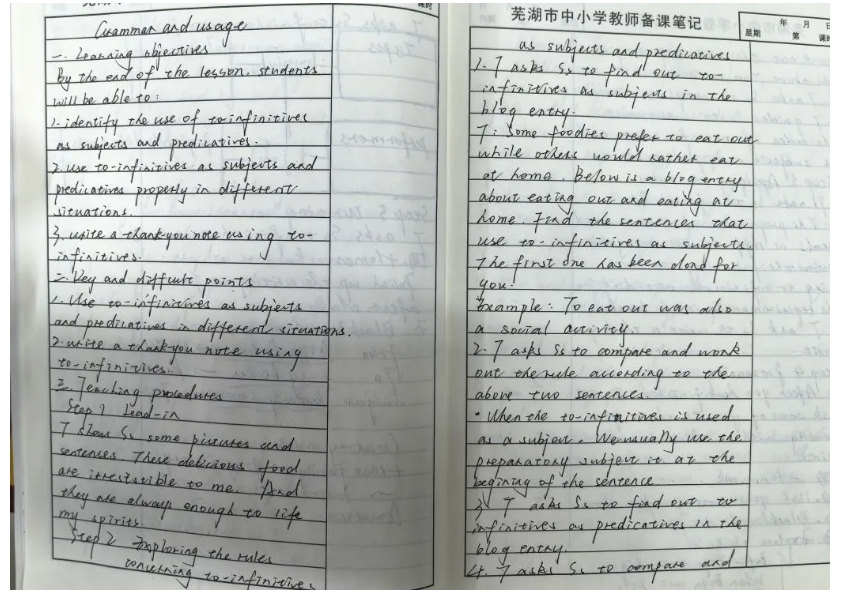 课时
Grammar and usage
一. Learning objectives
By the end of the lesson, students
will be able to:
1. identify the use of to-infinitives
as subjects and predicatives.
2. use to-infinitives as subjects and
predicatives properly in different
situations.
3. write a thank-you note using to-
infinitives.
二. Key and difficult points
1. Use to-infinitives as subjects
and predicatives in different situations.
2. write a thank-you note using
to-infinitives.
三. Teaching procedures
Step 1 Lead-in
T shows Ss some pictures and
sentences These delicious food
are irresistible to me. And
they are always enough to life
my spirits.
Step 2 Exploring the rules
concerning to-infinitives
芜湖市中小学教师备课笔记
年 月 日
星期 第 课时
as subjects and predicatives
1. T asks Ss to find out to-
infinitives as subjects in the
blog entry.
T: Some foodies prefer to eat out
while others would rather eat
at home. Below is a blog entry
about eating out and eating at
home. Find the sentences that
use to-infinitives as subjects.
The first one has been done for
you.
Example: To eat out was also
a social activity.
2. T asks Ss to compare and work
out the rule according to the
above two sentences.
• When the to-infinitives is used
as a subject. We usually use the
preparatory subject it at the
begining of the sentence
3. T asks Ss to find out to
infinitives as predicatives in the
blog entry.
4. T asks Ss to compare and